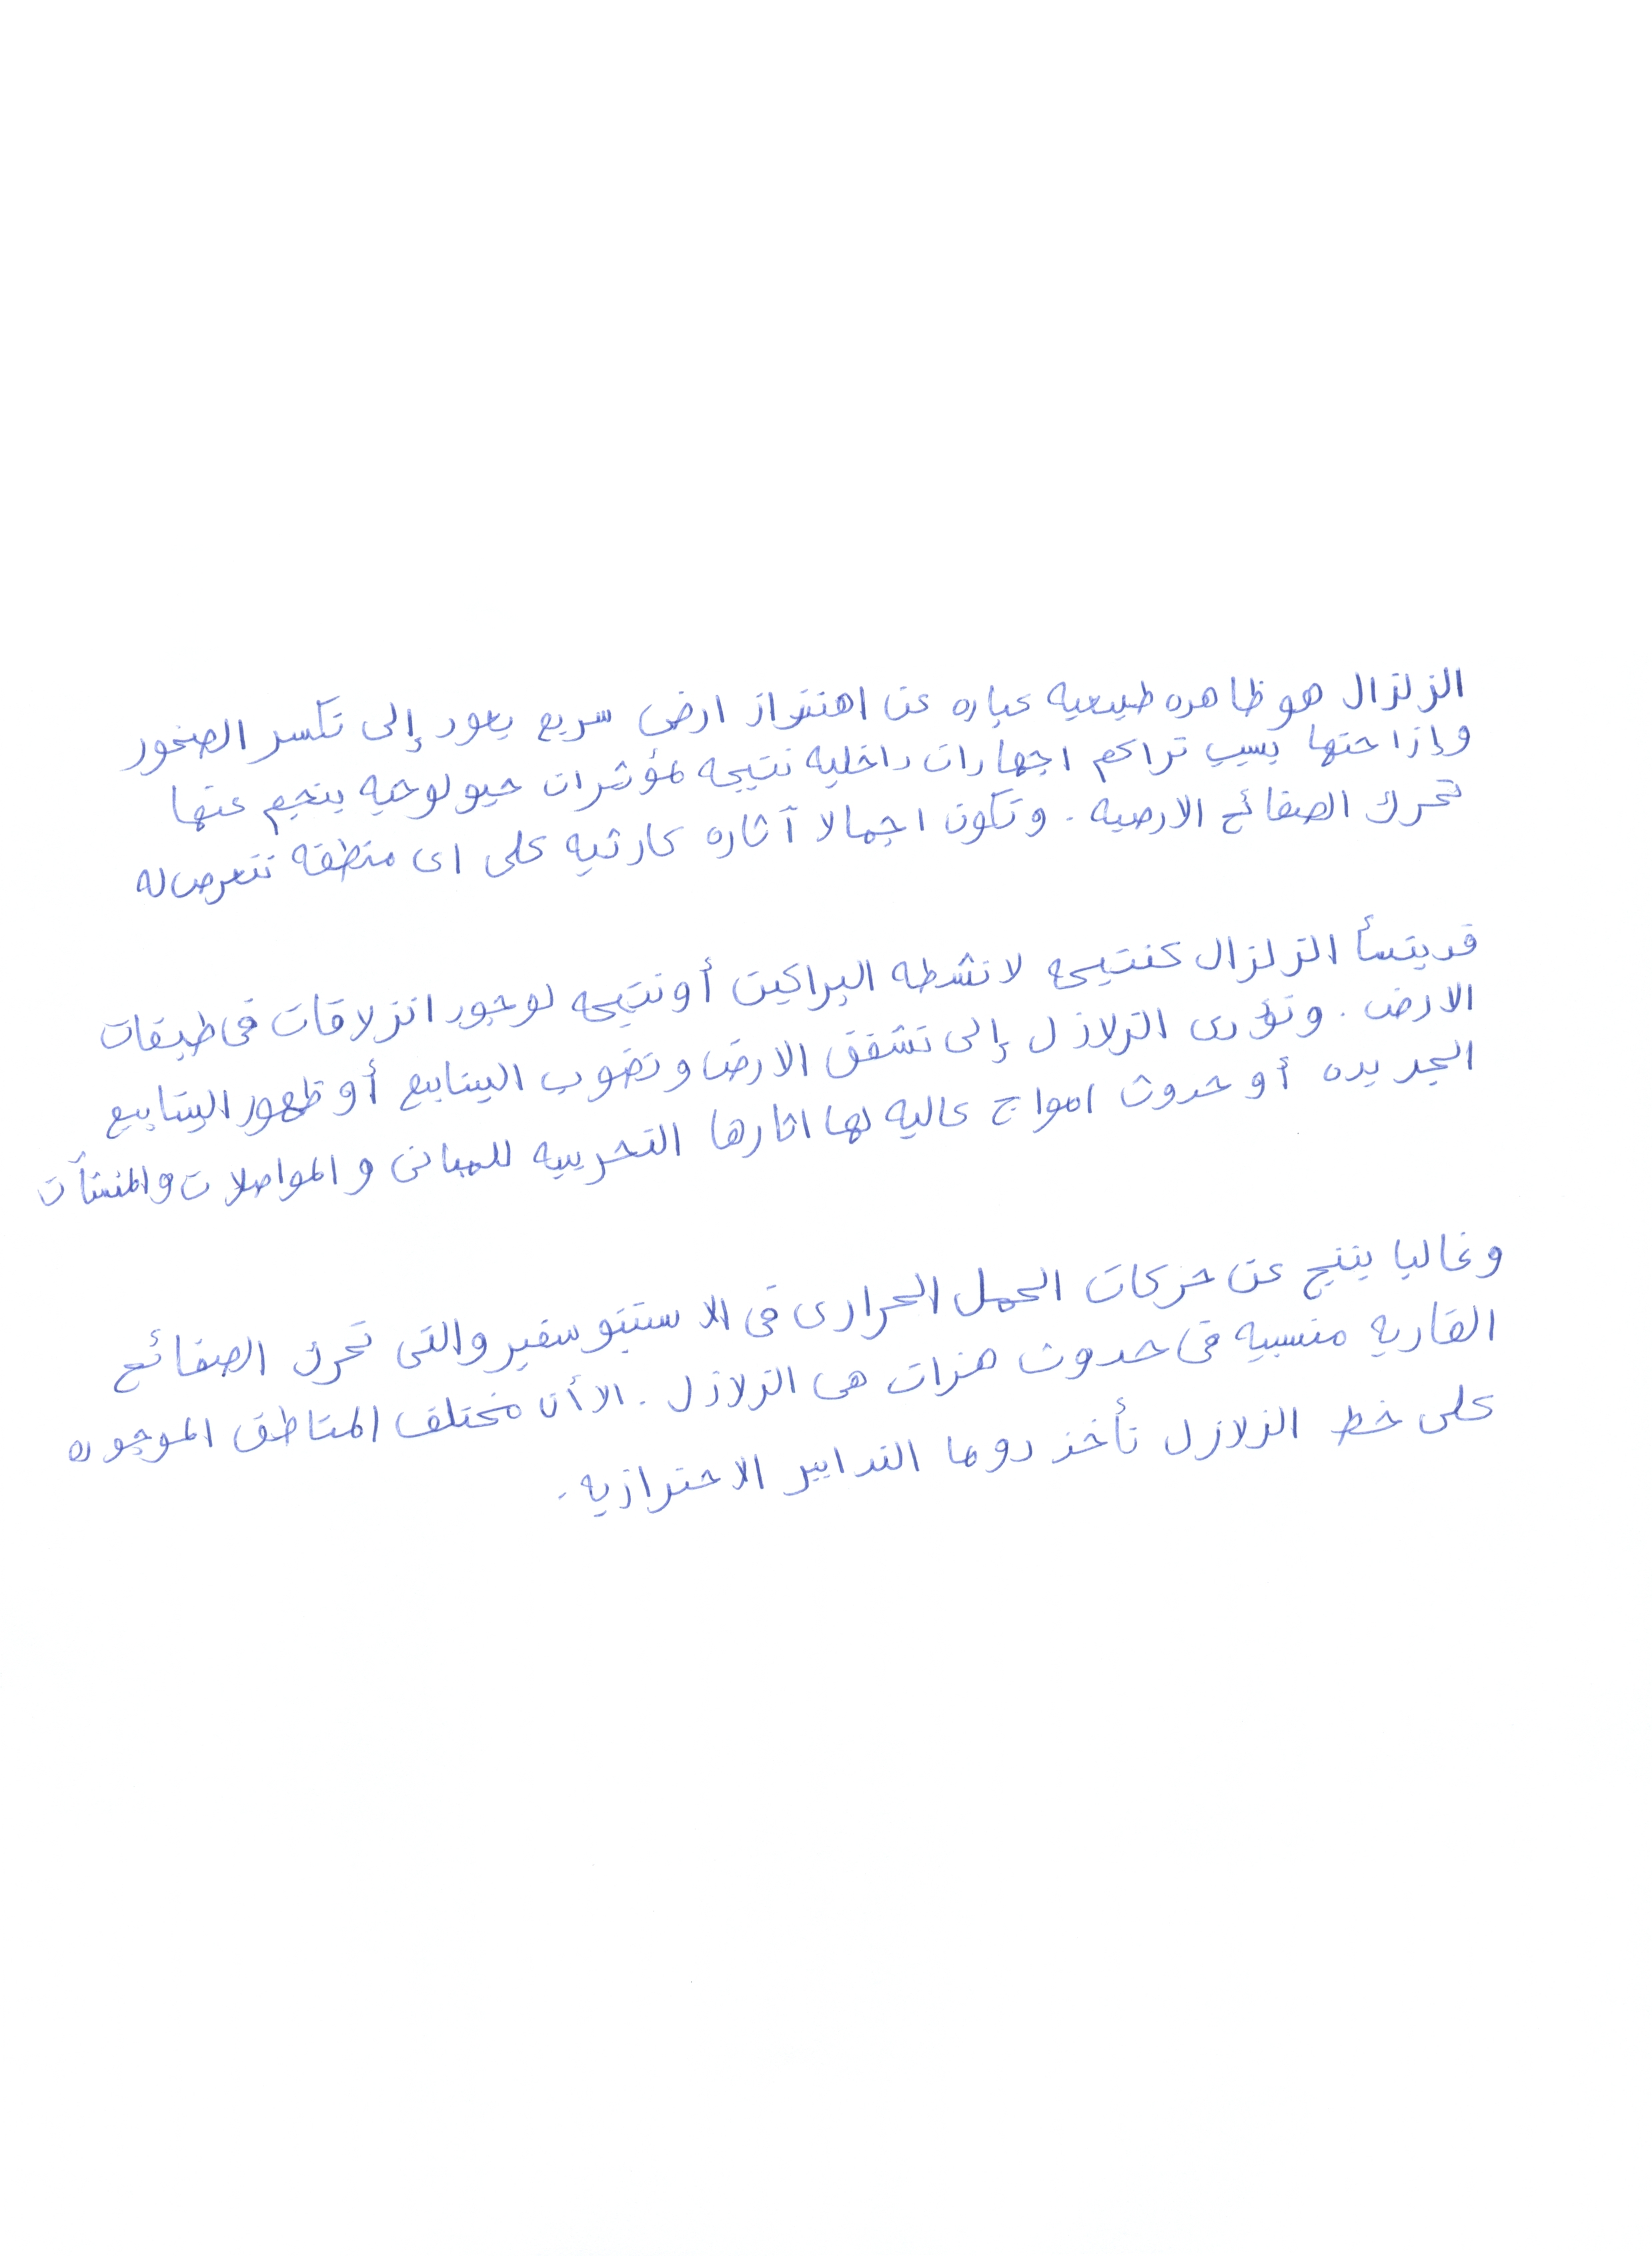 الزلزال هو ظاهره طبيعيه عباره عن اهتزاز ارضى سريع يعود إلى تكسر الصخور
وإزاحتها بسبب تراكم اجهادات داخليه نتيجه لمؤثرات جيولوجيه ينجم عنها
تحرك الصفائح الارضيه . وتكون اجمالا آثاره كارثيه على اى منطقه تتعرض له
قد ينشأ الزلزال كنتيجه لانشطه البراكين أو نتيجه لوجود انزلاقات فى طبقات
الارض . وتؤدى الزلازل إلى تشقق الارض و نضوب الينابيع أو ظهور الينابيع
الجديده أو حدوث امواج عاليه لها اثارها التخريبيه للمبانى و المواصلات والمنشآت
وغالبا ينتج عن حركات الحمل الحرارى فى الاستينوسفير والتى تحرك الصفائح
القاريه متسببه فى حدوث هزات هى الزلازل . الا أن مختلف المناطق الموجوده
على خط الزلازل تأخذ دوما التدابير الاحترازيه .